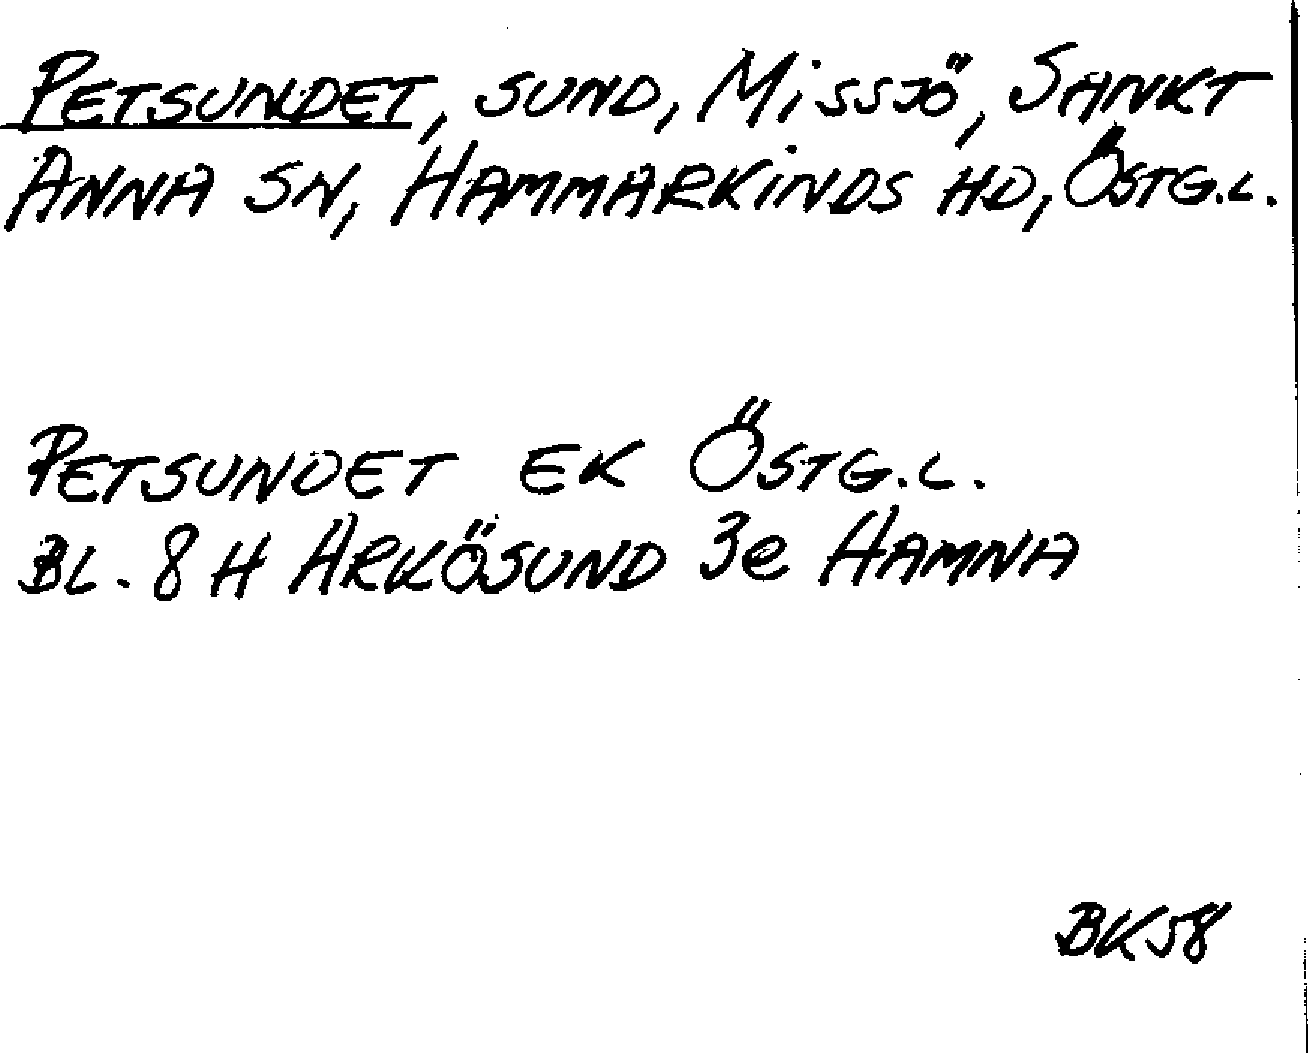 PETSUNDET, SUND, MISSJÖ, SANKT
ANNA SN, HAMMARKINDS HD, ÖSTG.L.
PETSUNDET EK ÖSTG.L.
BL. 8 H ARKÖSUND 3e HAMNA
BK58